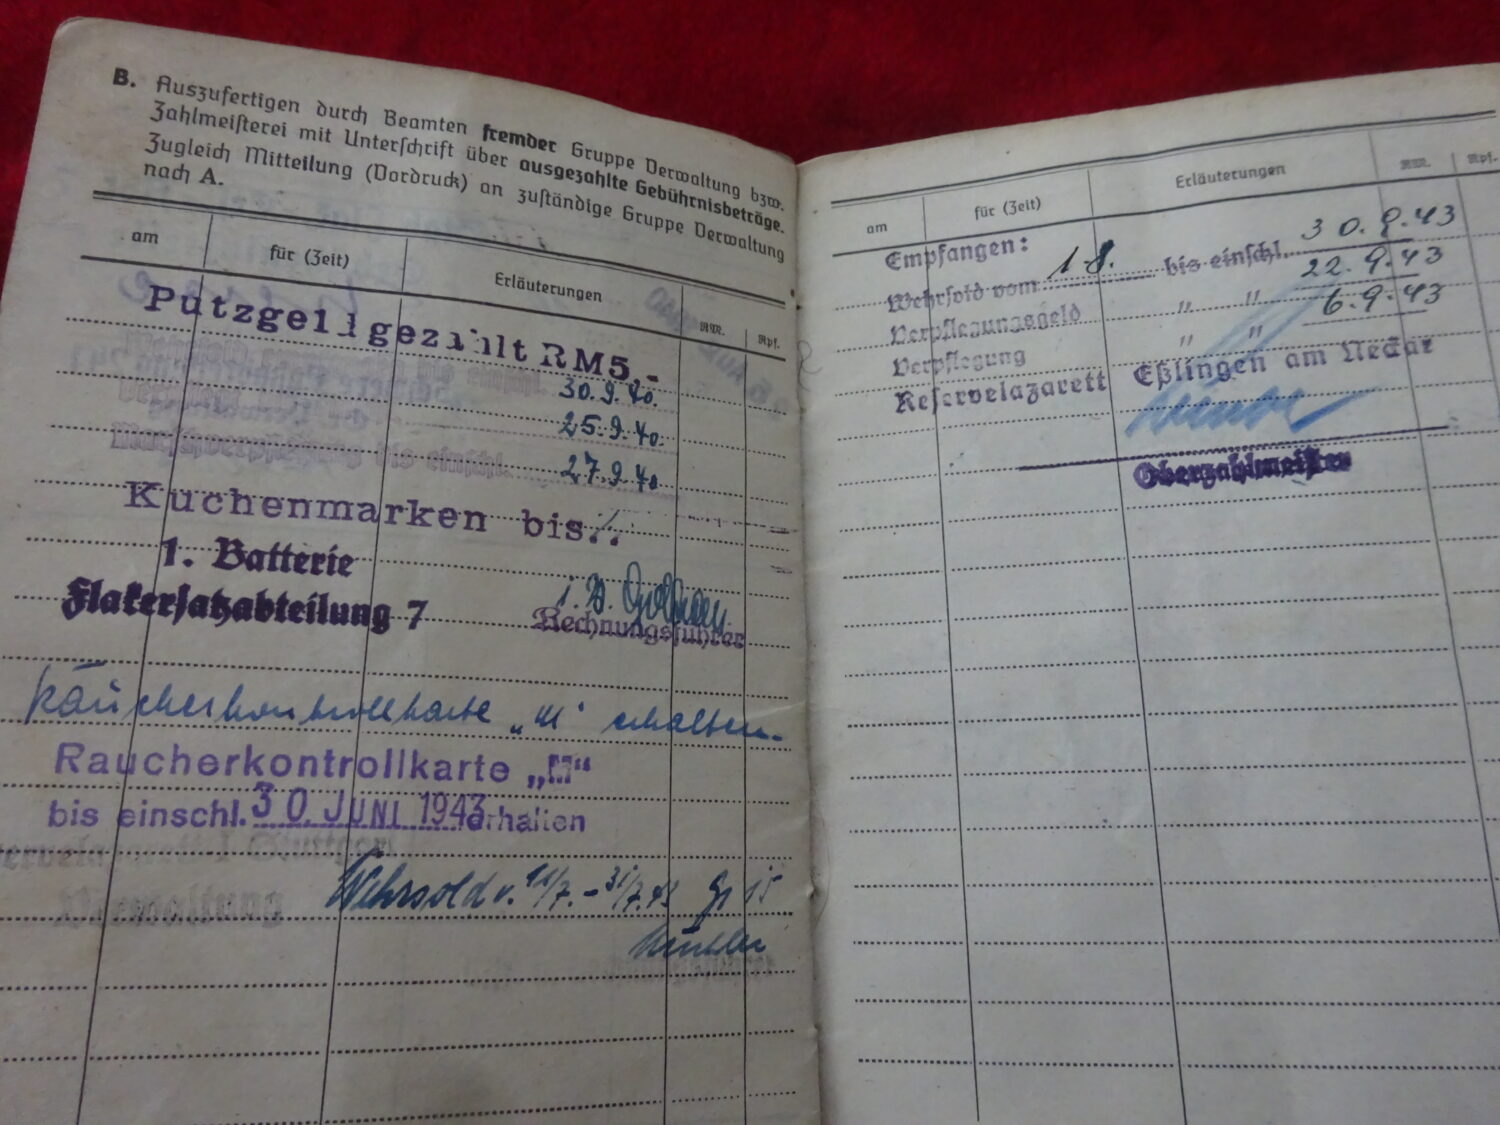 B. Auszufertigen durch Beamten fremder Gruppe Verwaltung bzw.
Zahlmeisterei mit Unterschrift über ausgezahlte Gebührnisbeträge.
Zugleich Mitteilung (Vordruck) an zuständige Gruppe Verwaltung
nach A.
am für (Zeit) Erläuterungen RM. Rpf.
Putzgeld gezahlt RM5.-
30.9.40.
25.9.40.
Marschverpflegung bis einschl. 27.9.40.
Kuchenmarken bis ./.
1. Batterie
Flakersatzabteilung 7
i.V.
Rechnungsführer
Raucherkontrollkarte „M" erhalten.
Raucherkontrollkarte „M“
bis einschl. 30. JUNI 1943 erhalten
Wehrsold v. 11/7. – 31/7.43 Gr 15
am für (Zeit) Erläuterungen RM. Rpf.
Empfangen:
Wehrsold vom 1.8. bis einschl. 30.9.43
Verpflegungsgeld " " 22.9.43
Verpflegung " " 6.9.43
Reservelazarett Eßlingen am Neckar
Oberzahlmeister